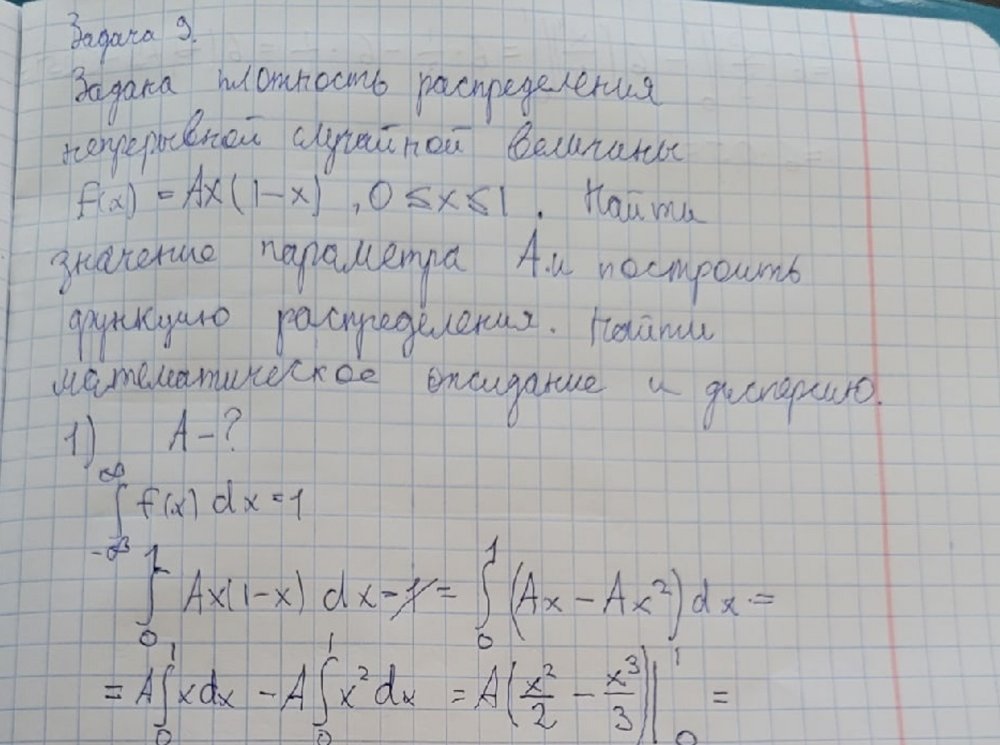 Задача 9.
Задана плотность распределения
непрерывной случайной величины
f(x) = Ax(1-x), 0 ≤ x ≤ 1. Найти
значение параметра A и построить
функцию распределения. Найти
математическое ожидание и дисперсию.
1) A - ?
∫_{-∞}^{∞} f(x) dx = 1
∫_0^1 Ax(1-x) dx = ∫_0^1 (Ax - Ax²) dx =
= A∫_0^1 xdx - A∫_0^1 x²dx = A(x²/2 - x³/3)|_0^1 =